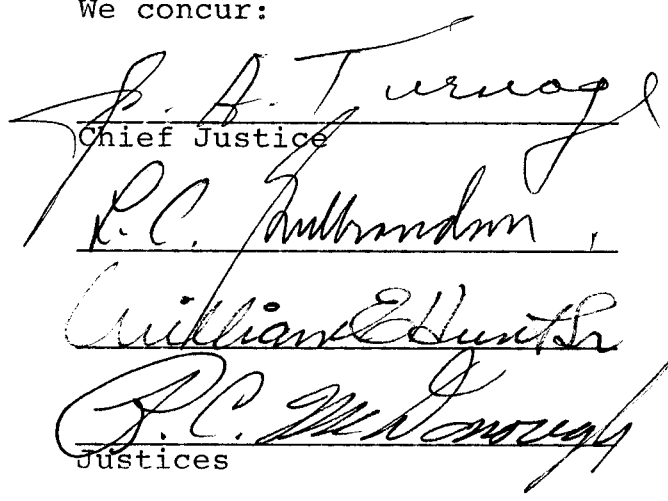 We concur:
J. A. Turnage
Chief Justice
L. C. Gulbrandson
William E Hunt Sr
R. C. McDonough
Justices